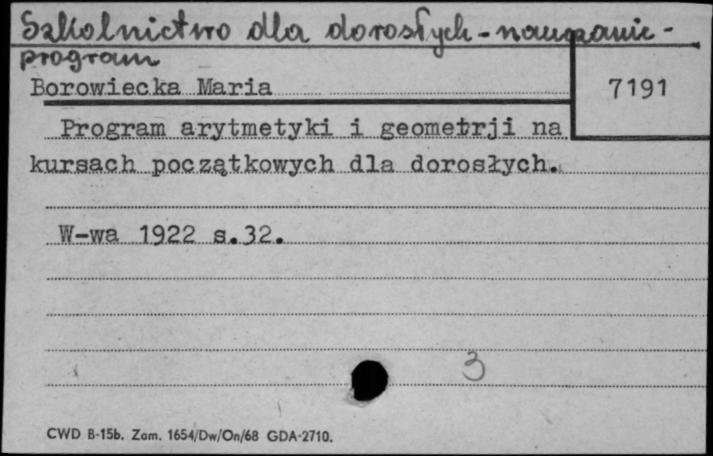 Szkolnictwo dla dorosłych - nauczanie -
program
Borowiecka Maria
7191
Program arytmetyki i geometrji na
kursach początkowych dla dorosłych.
W-wa 1922 s.32.
3
CWD B-15b. Zam. 1654/Dw/On/68 GDA-2710.